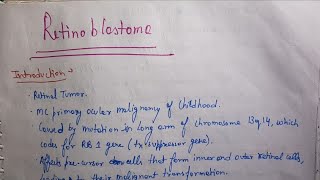 Retinoblastoma
Introduction :
• Retinal Tumor.
• MC primary ocular malignancy of childhood.
• Caused by mutation in long arm of chromosome 13q14, which
codes for RB 1 gene (tx suppressor gene).
• Affects precursor cells that form inner and outer retinal cells,
leading to their malignant transformation.